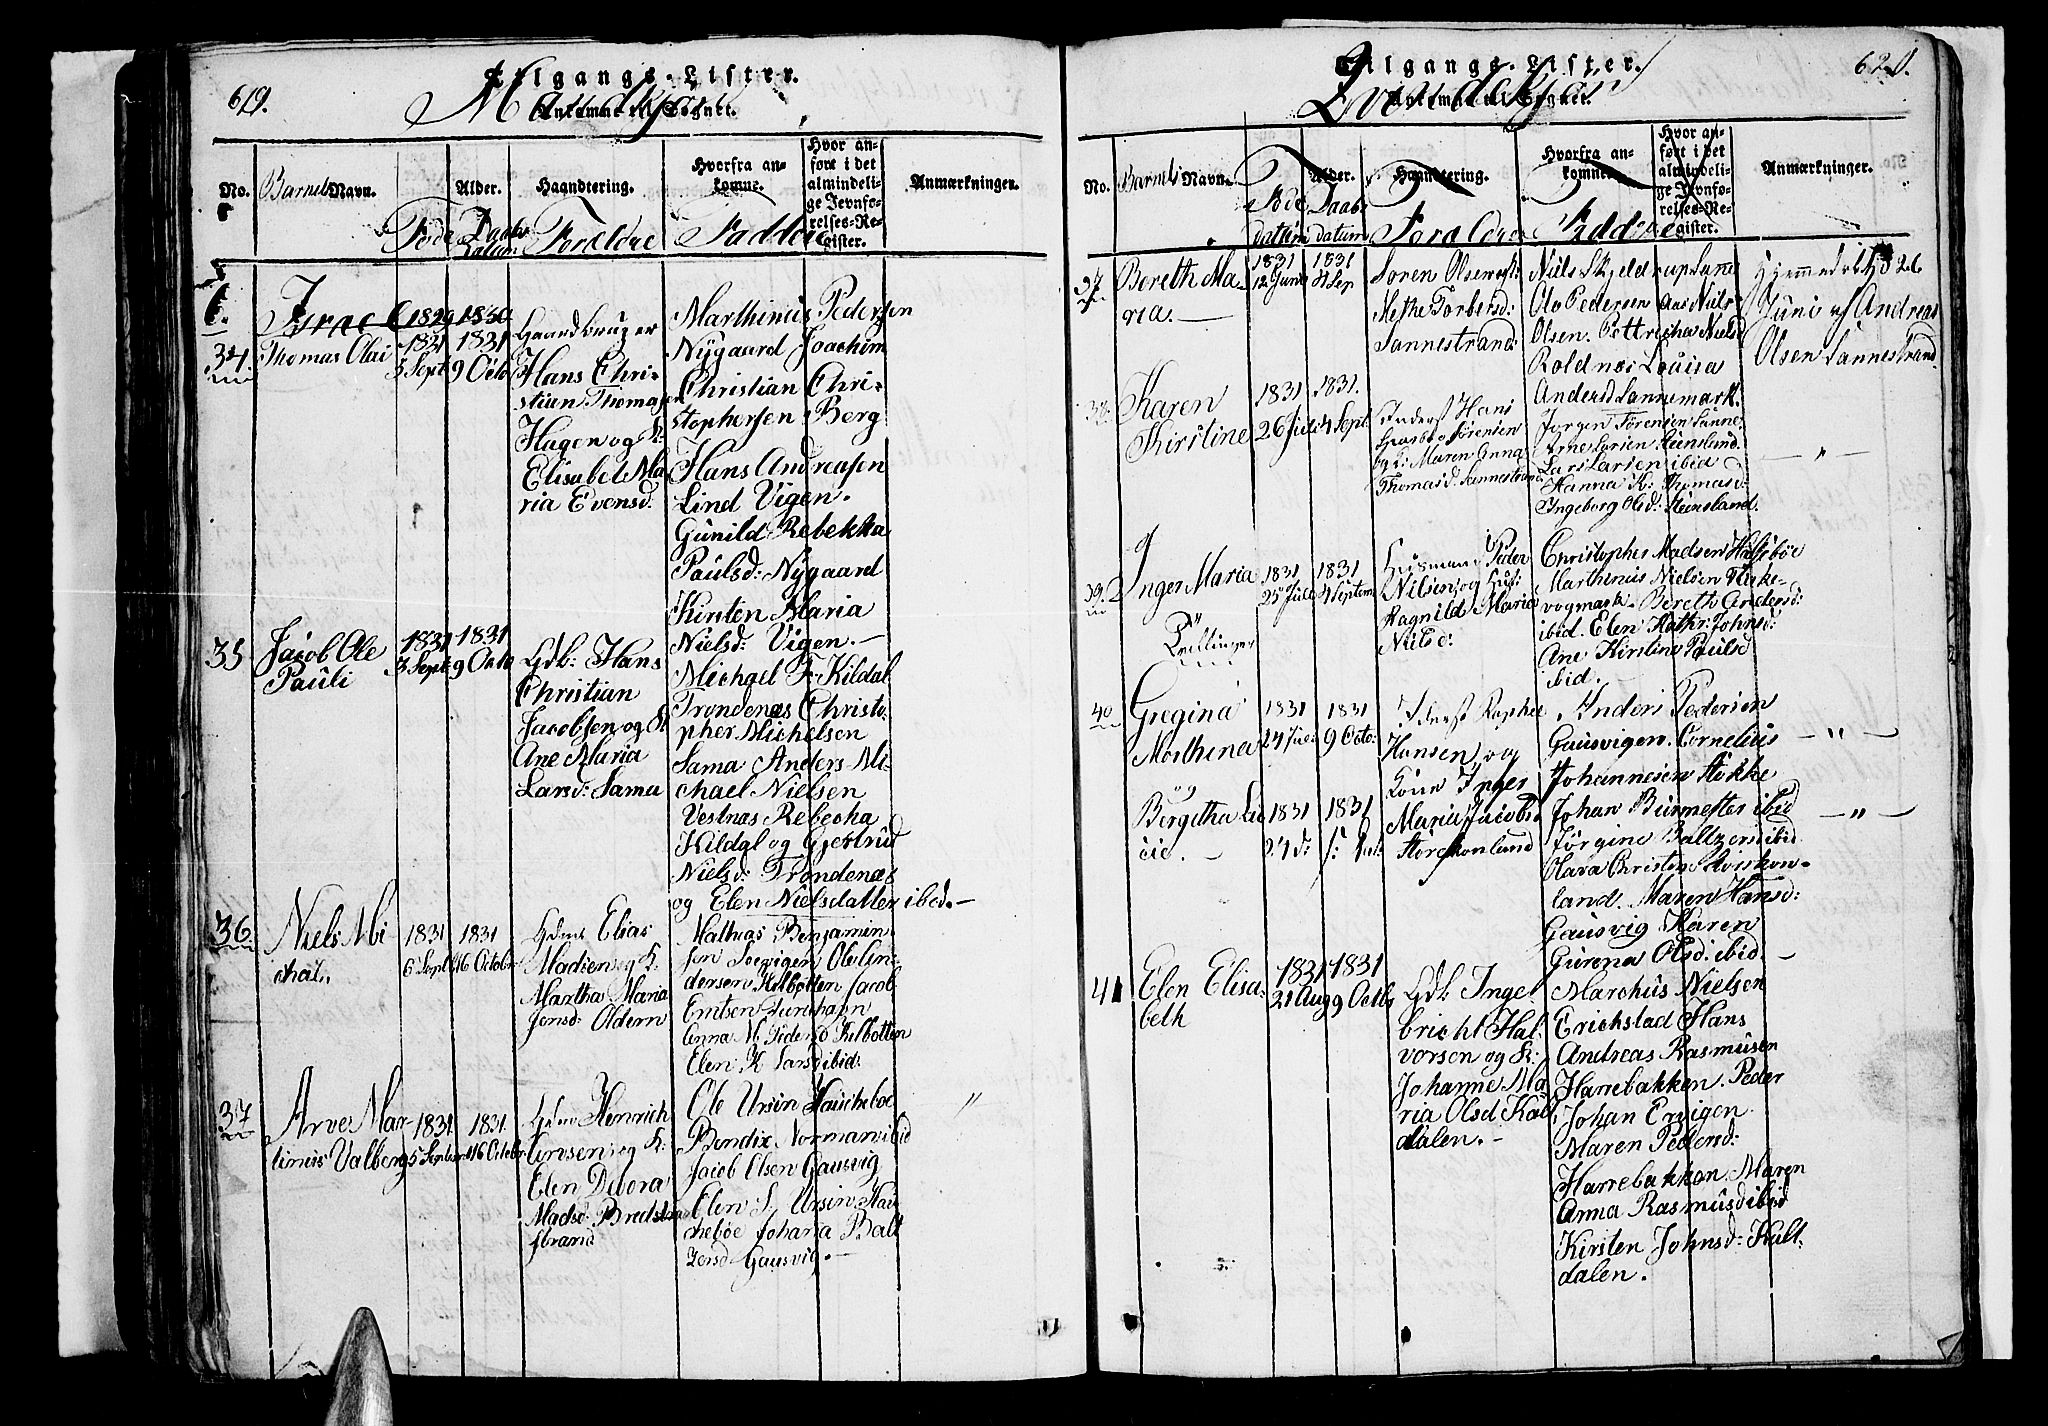 619.
Tilgangs-Lister.
Mandkjøn
Ankomne til Sognet.
No.
Barnets Navn.
Føde
Alder.
Daabs Datum
Haandtering.
Foraldre
Hvorfra ankomne.
Faddere
Hvor anført i det almindelige Jevnførelses-Register.
Anmærkninger.
1829 1830
34.
Thomas Olai
1831
5 Sept
1831
9 Octo
Haandbruger
Hans Chri-
stian Thomasen
Hagen og K:
Elisabet Ma
ria Evensd:
Marthinus Pedersen
Nygaard Joachim
Christian Chri-
stophersen Berg
Hans Andreasen
Lind Vigen.
Gunild Rebekka
Paulsd: Nygaard
Kirsten Maria
Nielsd: Vigen.-
35
Jacob Ole
Pauli
1831
3 Sept
1831
9 Octo
Gdb: Hans
Christian
Jacobsen og K
Ane Maria
Larsd: Sama
Michael F. Kildal
Trondenæs Christo-
pher Michelsen
Sama Anders Mi-
chael Nielsen
Vestnæs Rebecha
Kildal og Gjertrud
Nielsd: Trondenæs
og Elen Nielsdatter ibd.-
36
Niels Mi
chal.
1831
6 Sept
1831
16 Octobr
Elias
Madsen og K:
Martha Maria
Jensd: Oldern
Mathias Benjamin-
sen Soevigen Ole An-
dersen Kilbotten Jacob
Anna M. Pedersd Kilbotten
Elen K Larsd ibid:
37
Arve Mar-
tinus Valberg
1831
5 Septem
1831
16 Octobr
Henrich
Arosen og K:
Elen Devora
Madsd: Bredstrand
strand
Ole Ursin Haucheboe
Bendix Norman ibid
Jacob Olsen Gausvig
Elen S. Ursin Hau
cheboe Johana Balt
zersd Gausvig.-
"
620.
Tilgangs-Lister.
Qvindekjøn
Ankomne til Sognet.
No.
Barnets Navn.
Føde datum
Alder.
Daabs datum
Haandtering.
Foraldre
Hvorfra ankomne.
Faddere
Hvor anført i det almindelige Jevnførelses-Register.
Anmærkninger.
37
Bereth Ma-
ria.-
1831
12 Juni
1831
4 Sep
Søren Olsen og k:
Methe Torbersd:
Sannestrand
Niels Skjeldrup Sane
Ole Pedersen Aas Niels
Olsen. Pettricha Nielsd
Roldnæs Lovisa
Andersd Sannemark.
Hjemmedøbt d 26
Juni af Andreas
Olsen Sannestrand
38.
Karen
Kirstine
1831
26 Juli
1831.
4 Sept.
Inderst Hans
Sørensen
og k: Maren Anna
Thomasd: Sannestrand
Jørgen Sørensen Sanne.
Arne Larsen Steensland.
Lars Larsen ibid
Hanna K: Thomasd:
Ingeborg Olsd: Steensland.
- " -
39.
Inger Maria
1831
25 Juli
1831
4 Septem
Huusmand Peder
Nilsen og Hust:
Ragnild Maria
Nilsd:
Christopher Madsen Halsebøe
Marthinus Nielsen Fleke-
vogmark. Bereth Andersd:
ibid. Elen Kathr: Johnsd:
Ane Kirstine Paulsd
ibid.-
Tvillinger
40
Gregina
Morthina
og
Bergitha Lu
cie.-
1831
24 Jul:
1831
9 Octo:
1831
24 d:
1831
Inderst Raphael
Hansen og
Kone Inger
Maria Jacobsd
Storekonland
Anders Pedersen
Gausvigen. Cornelius
Johannesen Stokke
Johan Burmester ibid
Jørgine Baltzersd ibid.
Clara Christens Storekon-
land. Maren Hansd:
Gausvig Karen
Gurena Olsd: ibid.-
- " -
- " -
41
Elen Elisa-
beth
1831
21 Aug
1831
9 Octb:
Gdb: Inge
bricht Hal-
vorsen og K:
Johanne Ma-
ria Olsd Kal
dalen.-
Marchus Nielsen
Erichstad Hans
Andreas Rasmusen
Harrebakken. Peder
Johan Ervigen.
Maren Pedersd:
Harrebakken. Maren
Anna Rasmusd ibid
Kirsten Johnsd: Kalt-
dalen.